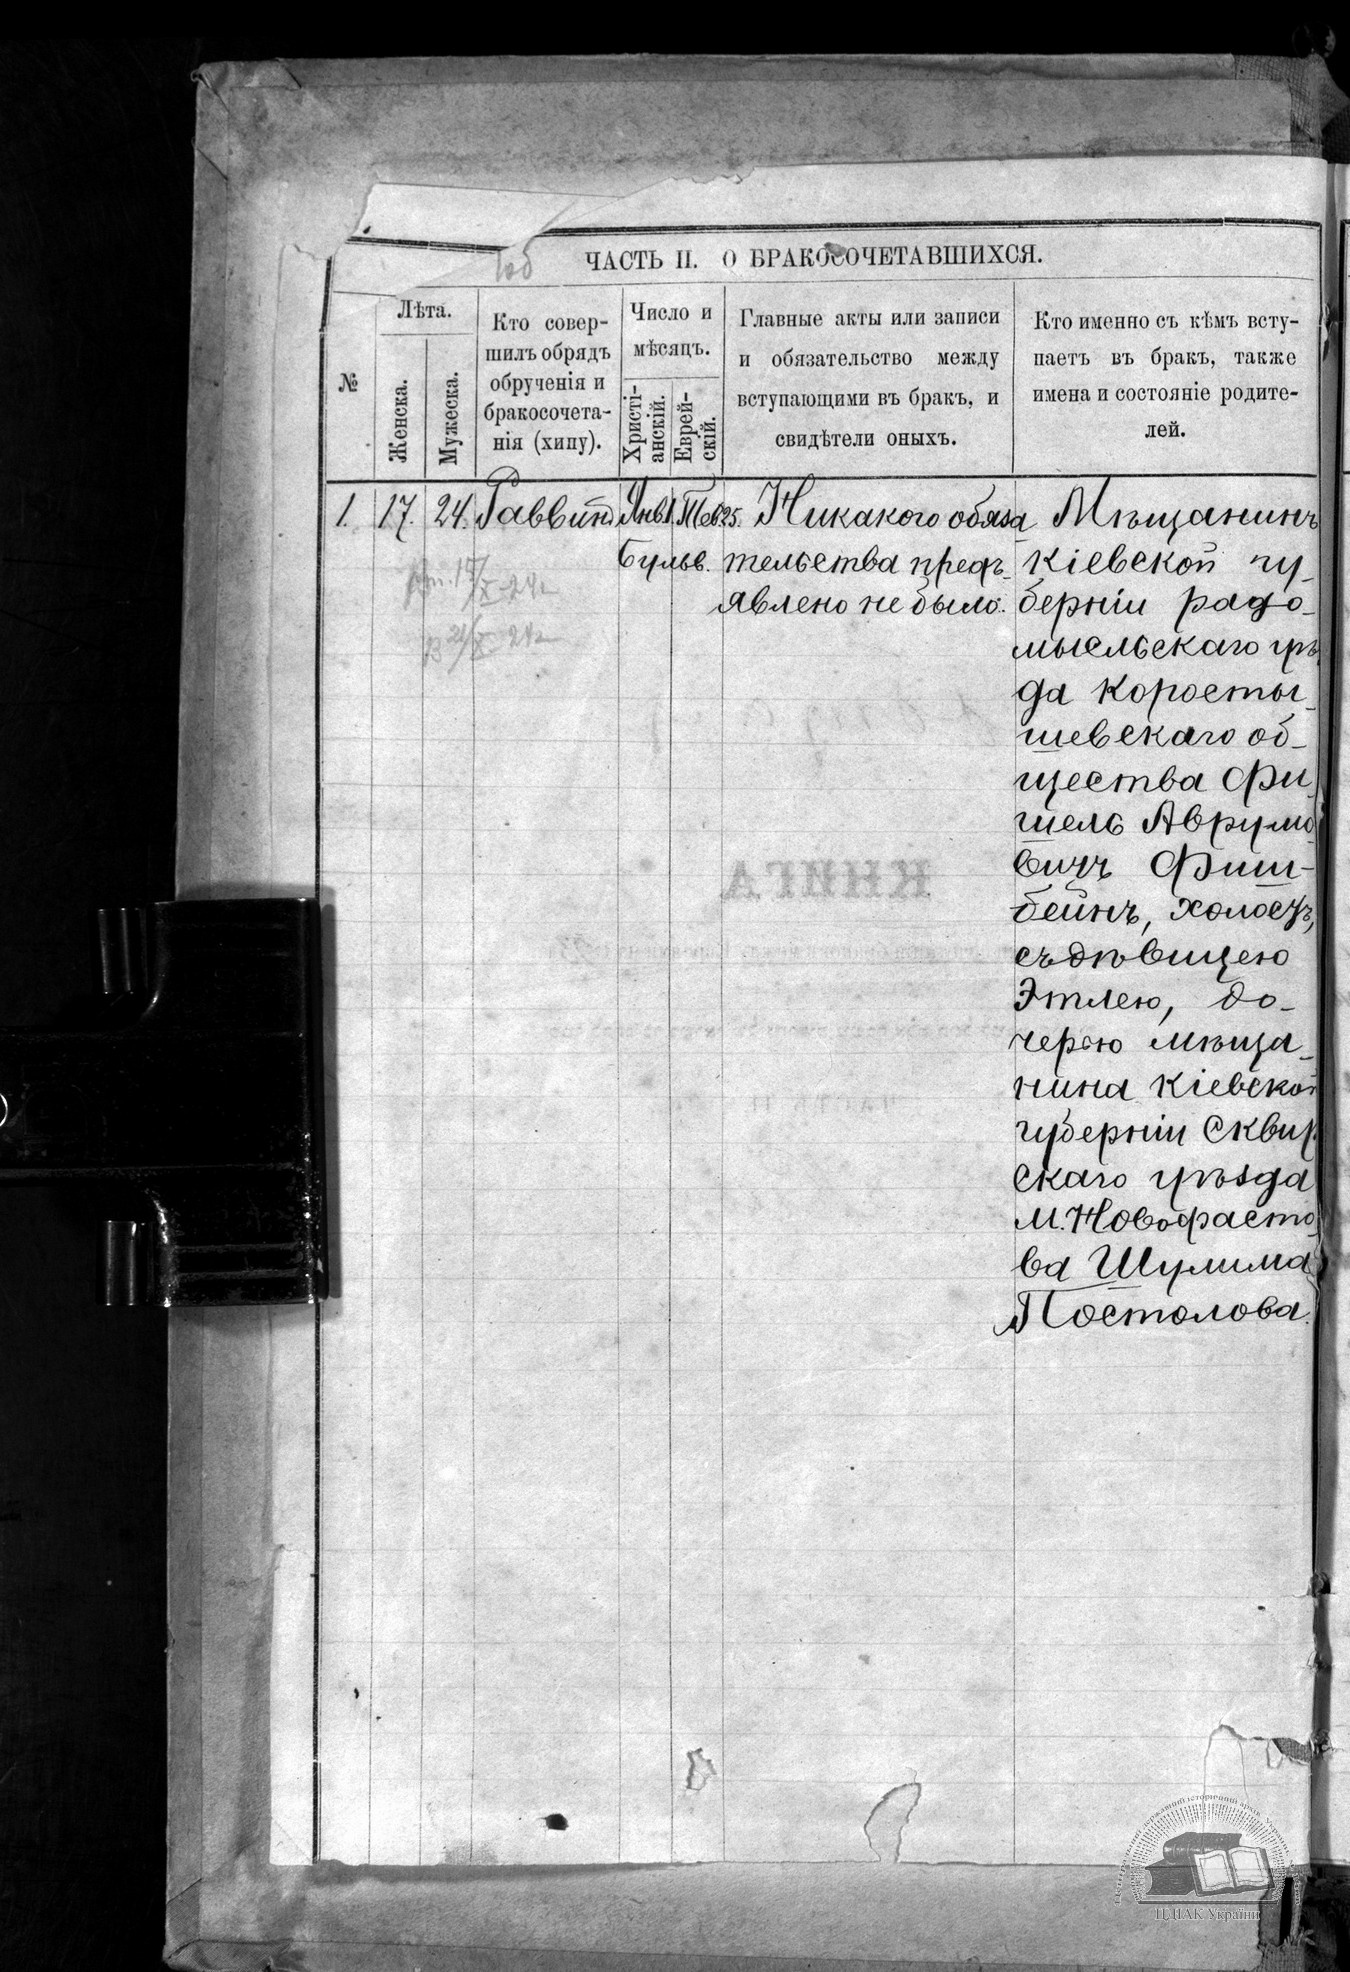 ЧАСТЬ II. О БРАКОСОЧЕТАВШИХСЯ.
№
Лѣта.
Женска.
Мужеска.
Кто совер-
шилъ обрядъ
обрученія и
бракосочета-
нія (хипу).
Число и
мѣсяцъ.
Христі-
анскій.
Еврей-
скій.
Главные акты или записи
и обязательство между
вступающими въ бракъ, и
свидѣтели оныхъ.
Кто именно съ кѣмъ всту-
паетъ въ бракъ, также
имена и состояніе родите-
лей.
1. 17. 24. Раввинъ Янв1 Тев25.
Бульв.
Никакого обяза
тельства предъ-
явлено не было.
Мѣщанинъ
Кіевской гу-
берніи радо-
мысльскаго уѣз
да Коросты-
шевскаго об-
щества Фи-
шель Аврумо
вичъ Фиш-
бейнъ, холостъ,
съ дѣвицею
Этлею, до-
черью мѣща-
нина Кіевской
губерніи Сквир
скаго уѣзда
м. Новофасто
ва Шулима
Постолова.
КНИГА
ЦДІАК України